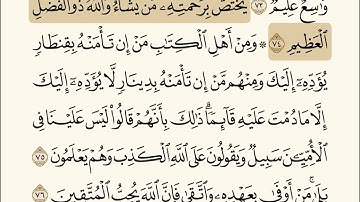 وَٰسِعٌ عَلِيمٌ ٧٣ يَخْتَصُّ بِرَحْمَتِهِۦ مَن يَشَآءُ وَٱللَّهُ ذُو ٱلْفَضْلِ
ٱلْعَظِيمِ ٧٤ ۞ وَمِنْ أَهْلِ ٱلْكِتَٰبِ مَنْ إِن تَأْمَنْهُ بِقِنطَارٍ
يُؤَدِّهِۦٓ إِلَيْكَ وَمِنْهُم مَّنْ إِن تَأْمَنْهُ بِدِينَارٍ لَّا يُؤَدِّهِۦٓ إِلَيْكَ
إِلَّا مَا دُمْتَ عَلَيْهِ قَآئِمًا ۗ ذَٰلِكَ بِأَنَّهُمْ قَالُوا۟ لَيْسَ عَلَيْنَا فِى
ٱلْأُمِّيِّـۧنَ سَبِيلٌ وَيَقُولُونَ عَلَى ٱللَّهِ ٱلْكَذِبَ وَهُمْ يَعْلَمُونَ ٧٥
بَلَىٰ مَنْ أَوْفَىٰ بِعَهْدِهِۦ وَٱتَّقَىٰ فَإِنَّ ٱللَّهَ يُحِبُّ ٱلْمُتَّقِينَ ٧٦